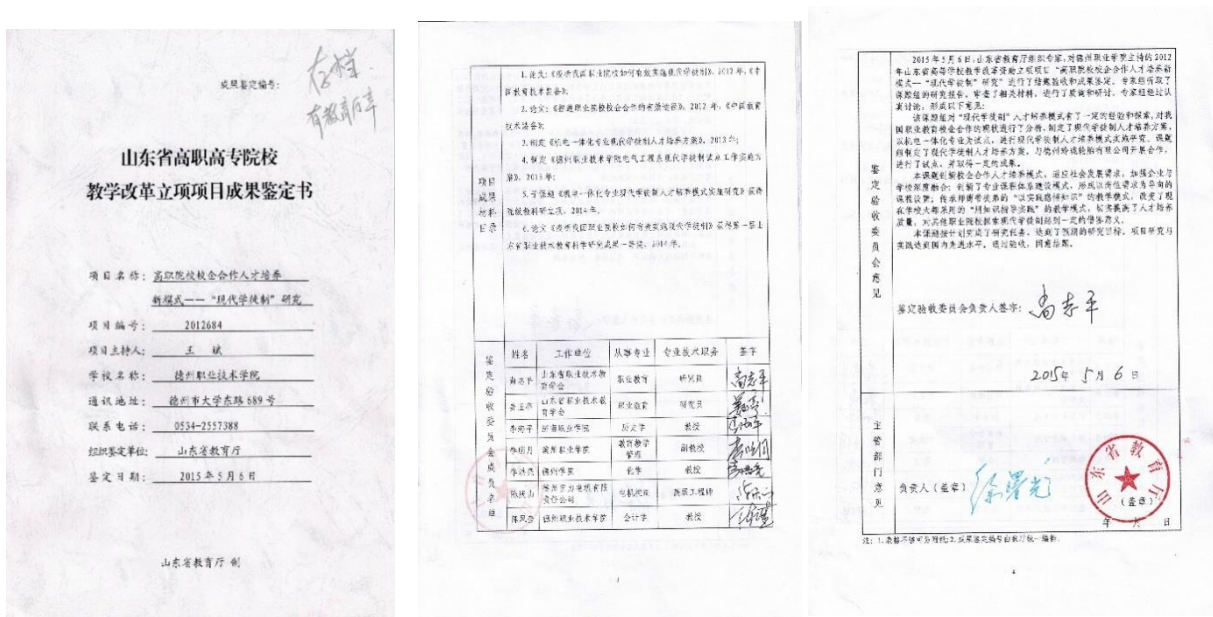 存档
有教育厅章
成果鉴定编号:
山东省高职高专院校
教学改革立项项目成果鉴定书
项目名称: 高职院校校企合作人才培养
新模式——“现代学徒制”研究
项目编号: 2012684
项目主持人: 王 斌
学校名称: 德州职业技术学院
通讯地址: 德州市大学东路 689 号
联系电话: 0534-2557388
组织鉴定单位: 山东省教育厅
鉴定日期: 2015 年 5 月 6 日
山东省教育厅 制
项目成果材料目录
1.论文:《浅析我国职业院校如何有效实施现代学徒制》, 2012 年,《中
国教育技术装备》;
2.论文:《推进职业院校校企合作的有效途径》, 2012 年,《中国教育
技术装备》;
3.制定《机电一体化专业现代学徒制人才培养方案》, 2013 年;
4.制定《德州职业技术学院电气工程系现代学徒制试点工作实施方
案》, 2013 年;
5.子课题《机电一体化专业现代学徒制人才培养模式实施研究》获得
院级教科研立项, 2014 年。
6.论文《浅析我国职业院校如何有效实施现代学徒制》获得第一届山
东省职业技术教育科学研究成果一等奖, 2014 年。
鉴定验收委员会成员名单
姓名 工作单位 从事专业 专业技术职务 签字
山东省职业技术教育学会 职业教育 研究员
山东省职业技术教育学会 职业教育 研究员
济南职业学院 教授
滨州职业学院 教育教学管理 副教授
德州学院 化学 教授
高级工程师
德州职业技术学院 会计学 教授
鉴定验收委员会意见
2015 年 5 月 6 日,山东省教育厅组织专家,对德州职业学院主持的 2012
年山东省高等学校教学改革资助立项项目“高职院校校企合作人才培养新
模式—“现代学徒制”研究”进行了结题验收和成果鉴定。专家组听取了
课题组的研究报告,审查了相关材料,进行了质询和研讨,专家组经过认
真讨论,形成以下意见:
该课题组对“现代学徒制”人才培养模式有了一定的经验和探索,对我
国职业教育校企合作的现状进行了分析,制定了现代学徒制人才培养方案,
以机电一体化专业为试点,进行现代学徒制人才培养模式实施研究。课题
组制定了现代学徒制人才培养方案,与德州玲珑轮胎有限公司开展合作,
进行了试点,并取得一定的成果。
本课题创新校企合作人才培养模式,适应社会发展需求,加强企业与
学校深度融合;创新了专业课程体系建设模式,形成以岗位需求为导向的
课程设置;传承师傅带徒弟的“以实践领悟知识”的教学模式,改变了现
在学校大都采用的“用知识指导实践”的教学模式,切实提高了人才培养
质量,对其他职业院校探索现代学徒制起到一定的借鉴意义。
本课题按计划完成了研究任务,达到了预期的研究目标,项目研究与
实践达到国内先进水平。通过验收,同意结题。
鉴定验收委员会负责人签字:
2015年 5 月 6 日
主管部门意见
负责人(盖章) 徐曙光
山东省教育厅
(盖章)
年 月 日
注: 1.表格不够可另附纸;2.成果鉴定编号由教育厅统一编制。